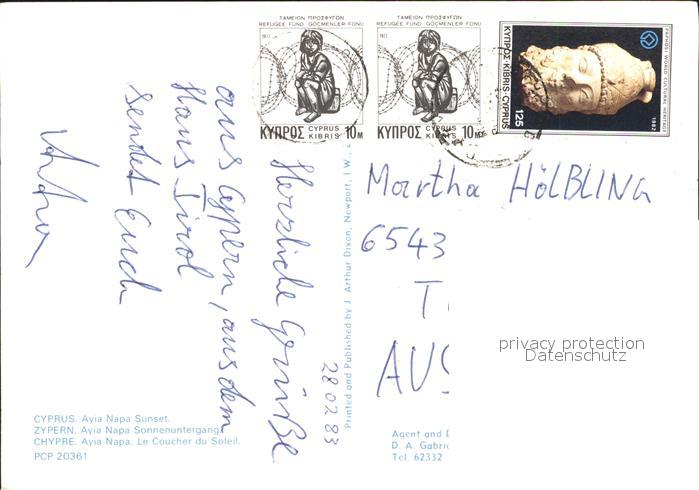 ΤΑΜΕΙΟΝ ΠΡΟΣΦΥΓΩΝ
REFUGEE FUND GÖÇMENLER FONU
1977
ΚΥΠΡΟΣ CYPRUS KIBRIS 10 M
ΤΑΜΕΙΟΝ ΠΡΟΣΦΥΓΩΝ
REFUGEE FUND GÖÇMENLER FONU
1977
ΚΥΠΡΟΣ CYPRUS KIBRIS 10 M
ΚΥΠΡΟΣ-KIBRIS-CYPRUS
125
PAPHOS: WORLD CULTURAL HERITAGE
1982
Herzliche Grüße
aus Cypern, aus dem
Haus Tirol
sendet Euch
28 02 83
Printed and Published by J. Arthur Dixon, Newport, I.W.,
Martha HÖLBLING
6543
T
AUS
privacy protection
Datenschutz
CYPRUS. Ayia Napa Sunset.
ZYPERN. Ayia Napa Sonnenuntergang.
CHYPRE. Ayia Napa. Le Coucher du Soleil.
PCP 20361
Agent and D
D. A. Gabri
Tel. 62332